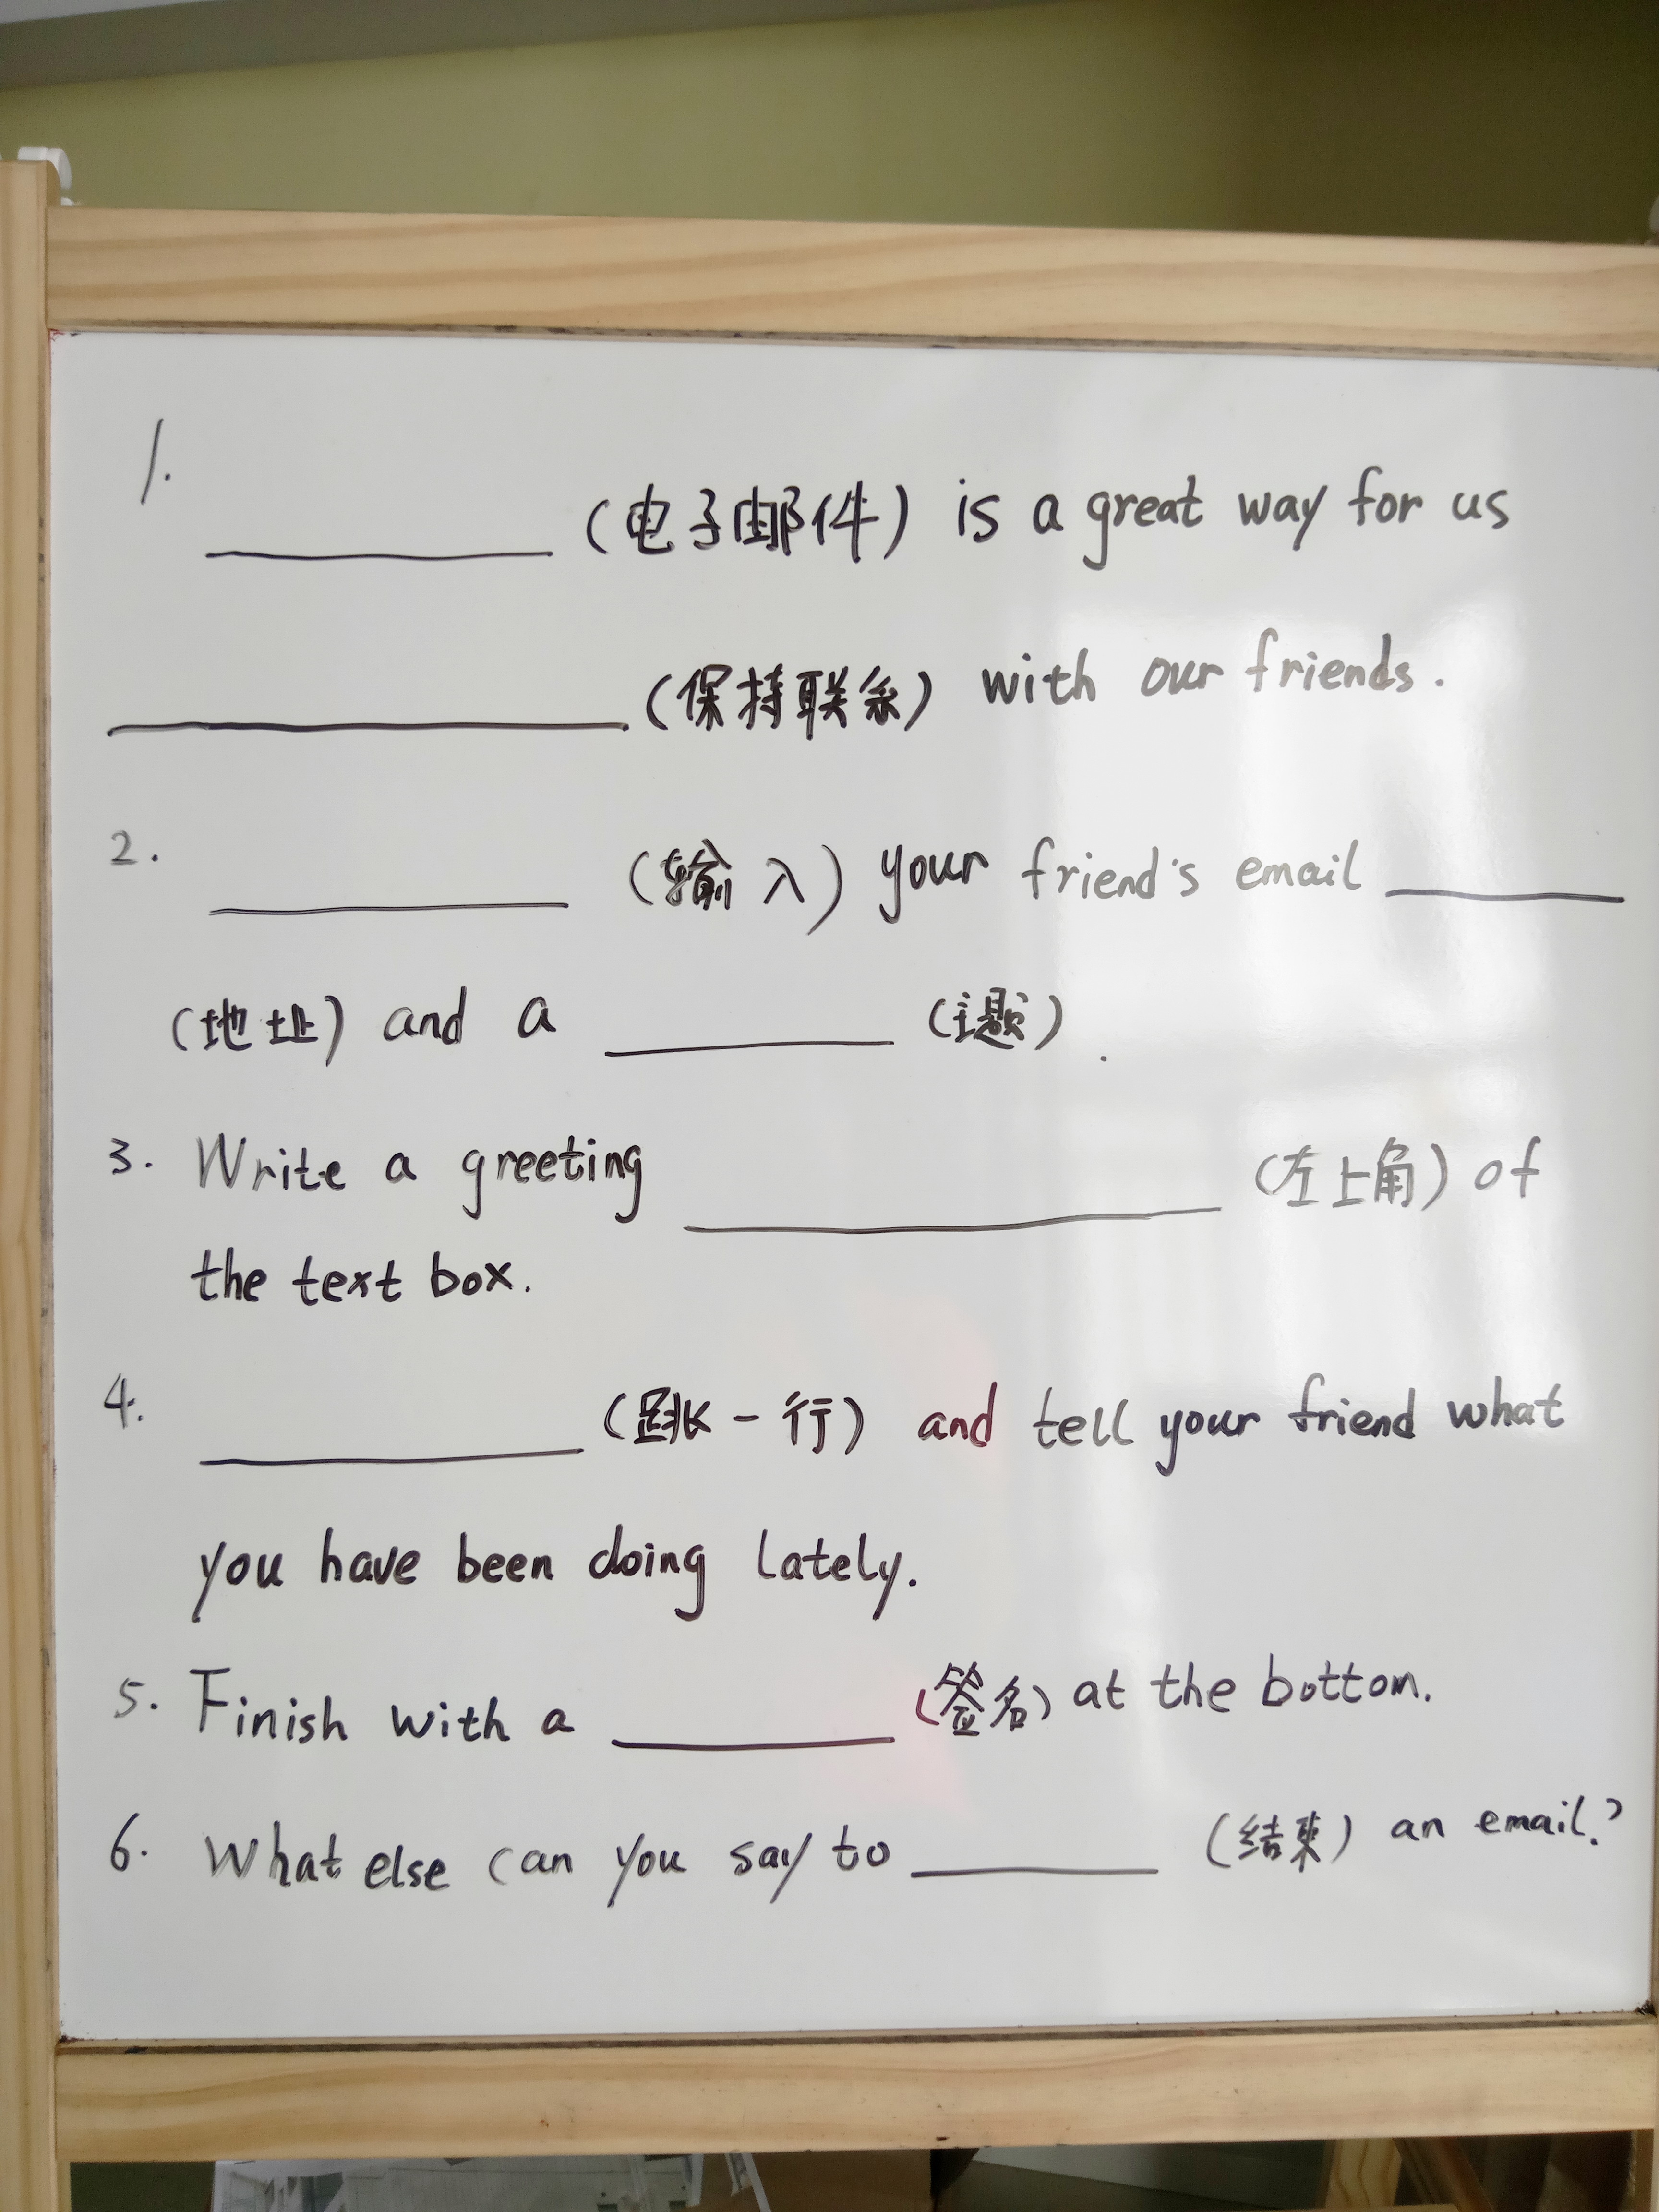 1.
______ (电子邮件) is a great way for us
______ (保持联系) with our friends.
2. ______ (输入) your friend's email ______
(地址) and a ______ (主题).
3. Write a greeting ______ (左上角) of
the text box.
4. ______ (跳一行) and tell your friend what
you have been doing lately.
5. Finish with a ______ (签名) at the bottom.
6. What else can you say to ______ (结束) an email?